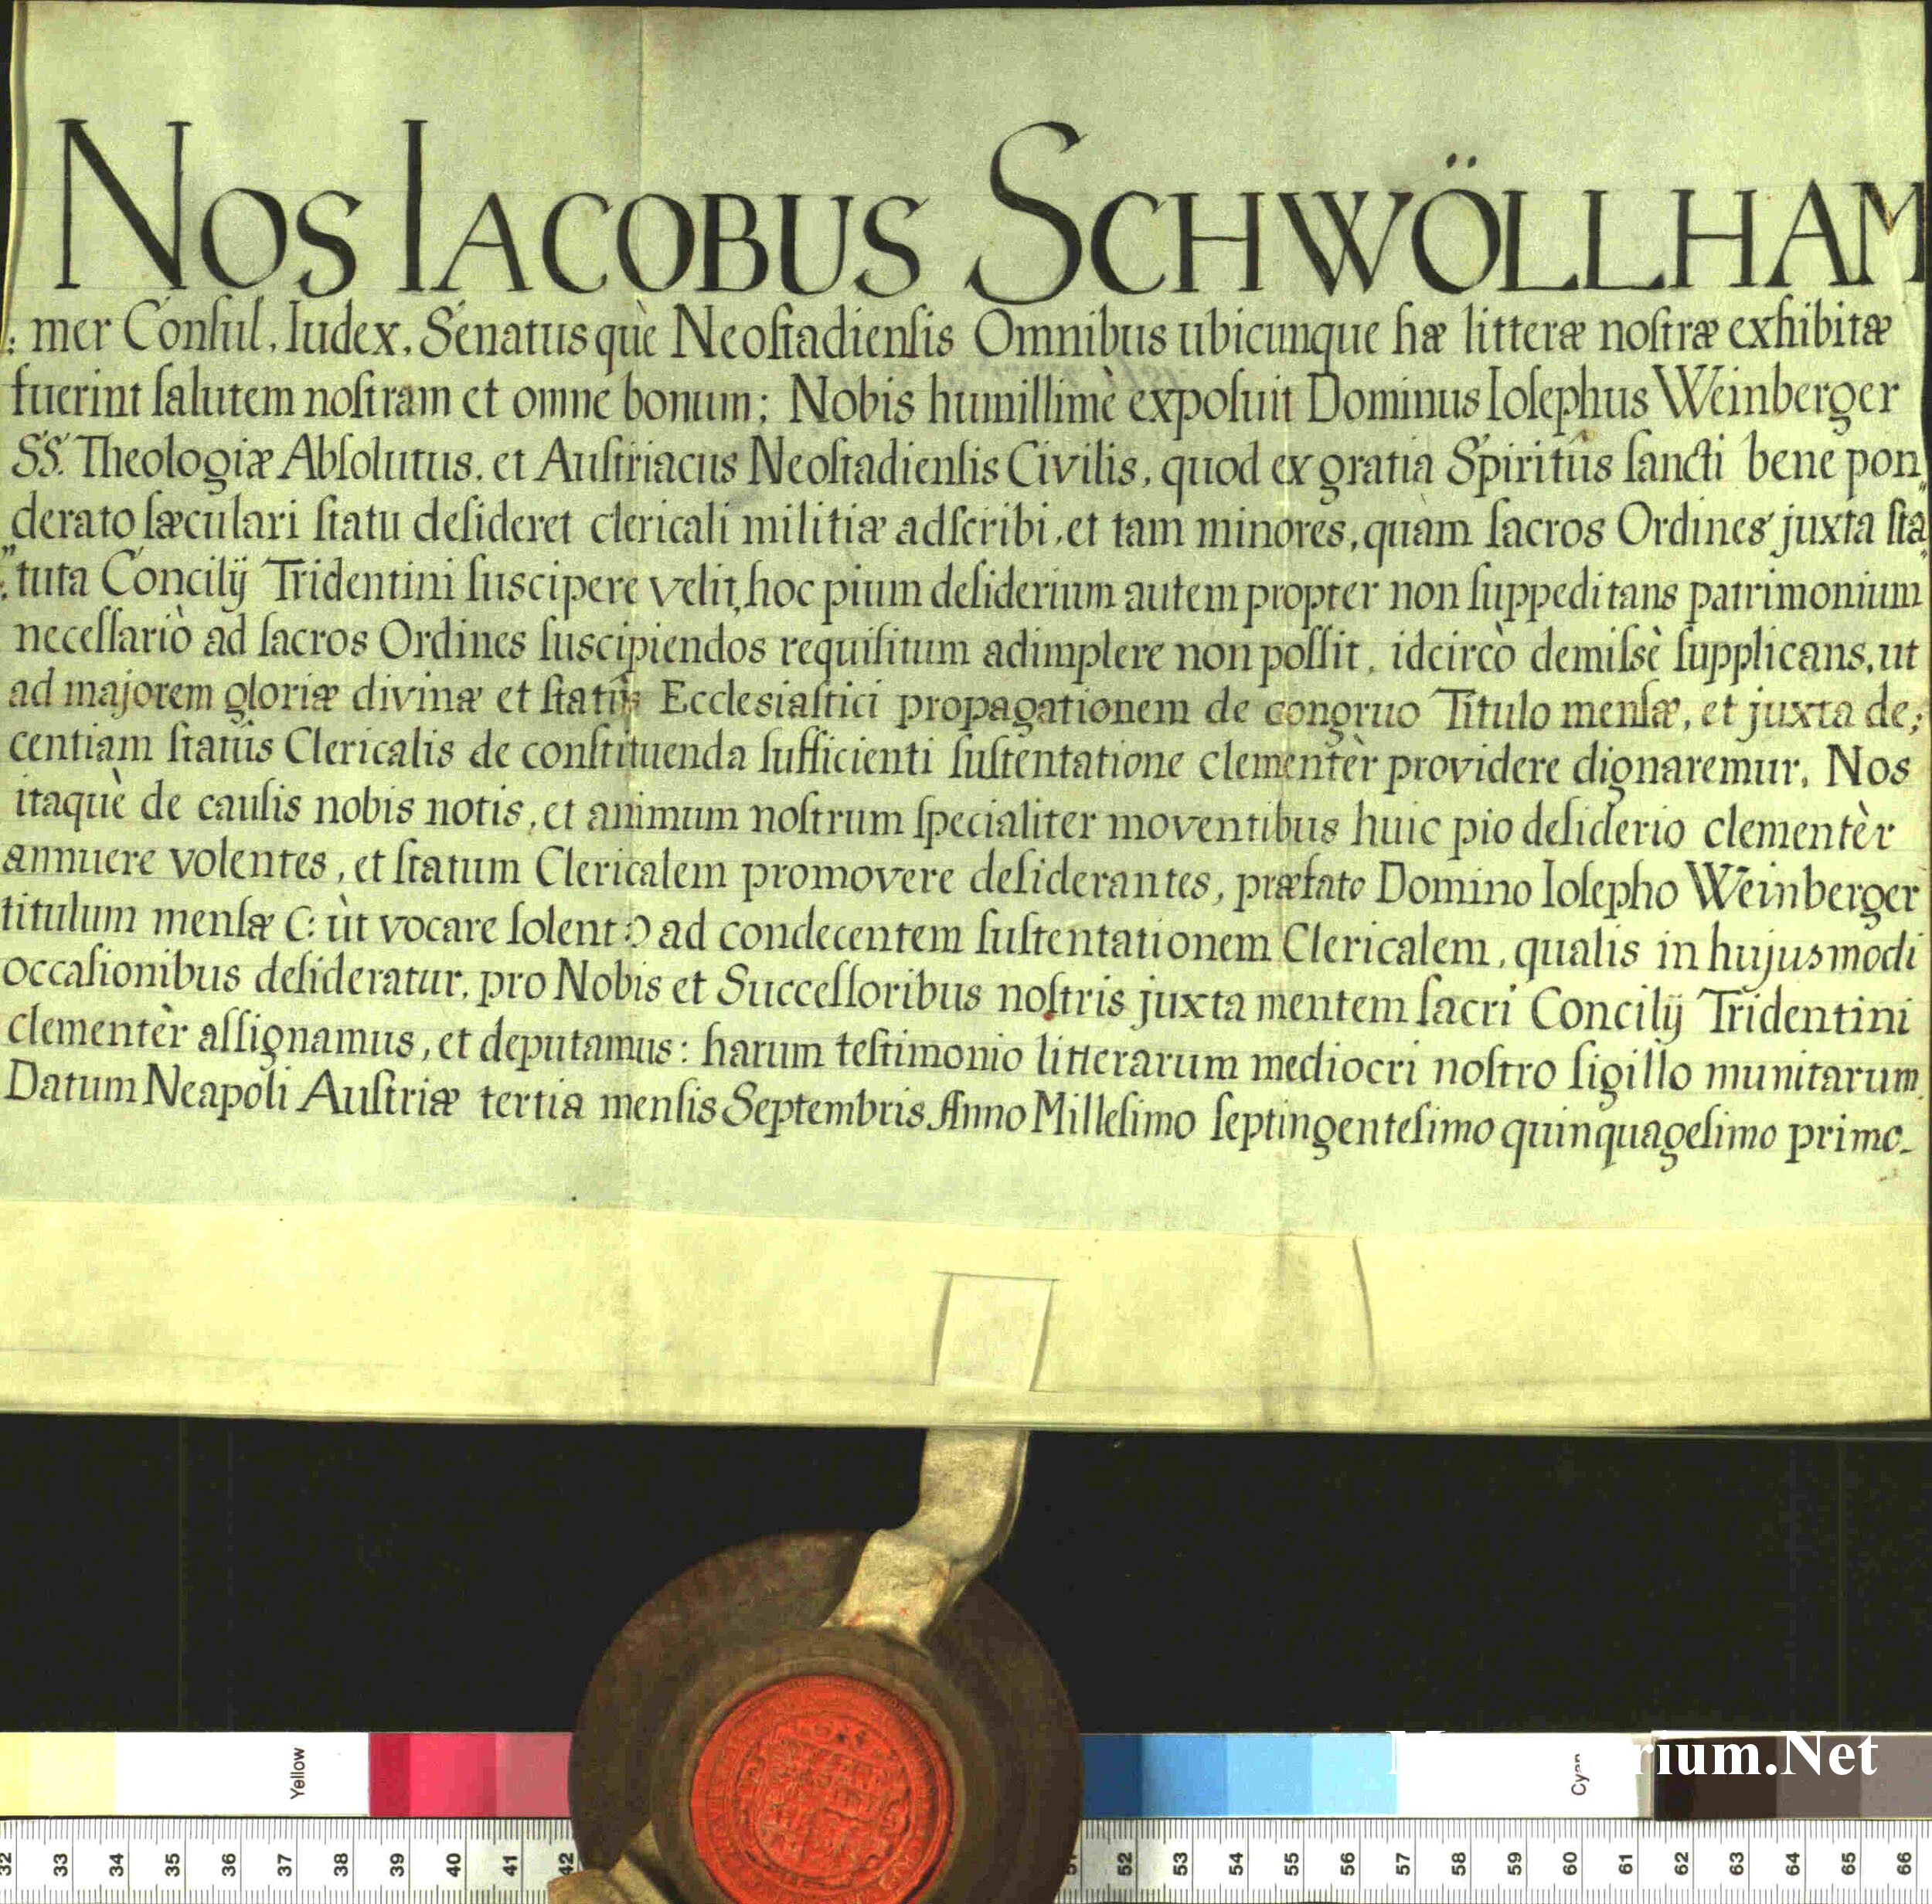 NOS IACOBUS SCHWÖLLHAM
: mer Conſul, Iudex, Senatusquè Neoſtadienſis Omnibus ubicunque hæ litteræ noſtræ exhibitæ
fuerint ſalutem noſtram et omne bonum; Nobis humillimè expoſuit Dominus Ioſephus Weinberger
SS. Theologiæ Abſolutus, et Auſtriacus Neoſtadienſis Civilis, quod ex gratia Spiritûs ſancti bene pon„
derato ſæculari ſtatu deſideret clericali militiæ adſcribi, et tam minores, quàm ſacros Ordines juxta ſta„
„tuta Concilij Tridentini ſuscipere velit, hoc pium deſiderium autem propter non ſuppeditans patrimonium
neceſſariò ad ſacros Ordines ſuscipiendos requiſitum adimplere non poſſit, idcircò demiſsè ſupplicans, ut
ad majorem gloriæ divinæ et ſtatûs Ecclesiaſtici propagationem de congruo Titulo menſæ, et juxta de;
centiam ſtatûs Clericalis de conſtituenda ſufficienti ſuſtentatione clementèr providere dignaremur, Nos
itaquè de cauſis nobis notis, et animum noſtrum ſpecialiter moventibus huic pio deſiderio clementèr
annuere volentes, et ſtatum Clericalem promovere deſiderantes, præfato Domino Ioſepho Weinberger
titulum menſæ (: ùt vocare ſolent :) ad condecentem ſuſtentationem Clericalem, qualis in hujusmodi
occaſionibus deſideratur, pro Nobis et Succeſſoribus noſtris juxta mentem ſacri Concilij Tridentini
clementèr aſſignamus, et deputamus: harum teſtimonio litterarum mediocri noſtro ſigillo munitarum,
Datum Neapoli Auſtriæ tertia menſis Septembris Anno Milleſimo ſeptingenteſimo quinquageſimo primo.
Yellow
Cyan
rium.Net
32 33 34 35 36 37 38 39 40 41 42 51 52 53 54 55 56 57 58 59 60 61 62 63 64 65 66